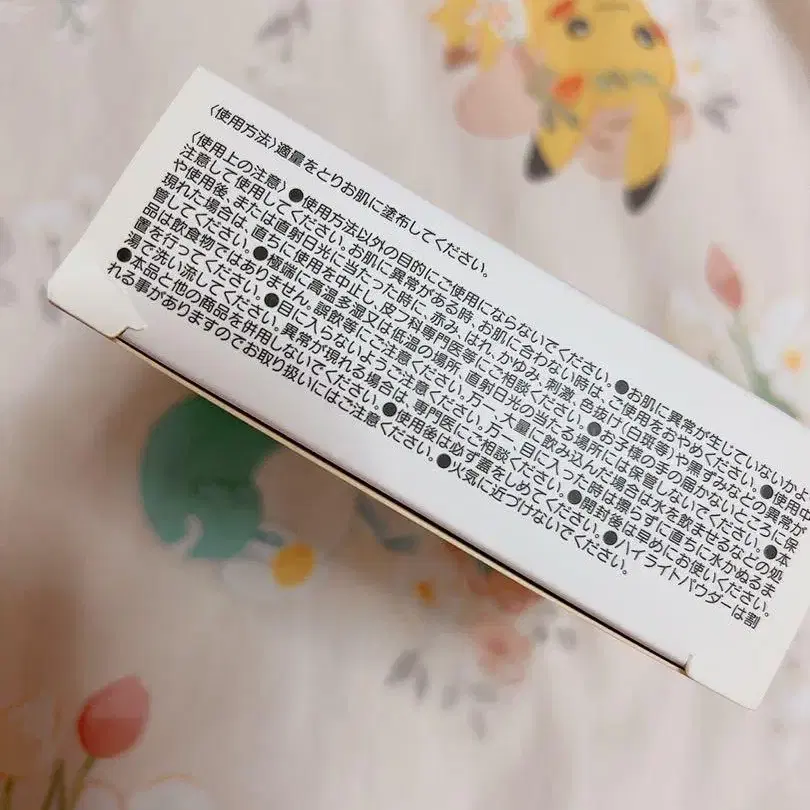 〈使用方法〉適量をとりお肌に塗布してください。
〈使用上の注意〉●使用方法以外の目的にご使用にならないでください。●お肌に異常が生じていないかよく
注意して使用してください。お肌に異常がある時、お肌に合わない時は、ご使用をおやめください。●使用中
や使用後、または直射日光に当たった時に、赤み、はれ、かゆみ、刺激、色抜け(白斑等)や黒ずみなどの異常が
現れた場合は、直ちに使用を中止し、皮フ科専門医等にご相談ください。●お子様の手の届かないところに保
管してください。●極端に高温多湿又は低温の場所、直射日光の当たる場所には保管しないでください。●本
品は飲食物ではありません。誤飲等にご注意ください。万一、大量に飲み込んだ場合は水を飲ませるなどの処
置を行ってください。●目に入らないようご注意ください。万一、目に入った時は擦らずに直ちに水かぬるま
湯で洗い流してください。異常が現れる場合は、専門医にご相談ください。●開封後は早めにお使いください。
●本品と他の商品を併用しないでください。●使用後は必ず蓋をしめてください。●ハイライトパウダーは割
れる事がありますのでお取り扱いにはご注意ください。●火気に近づけないでください。